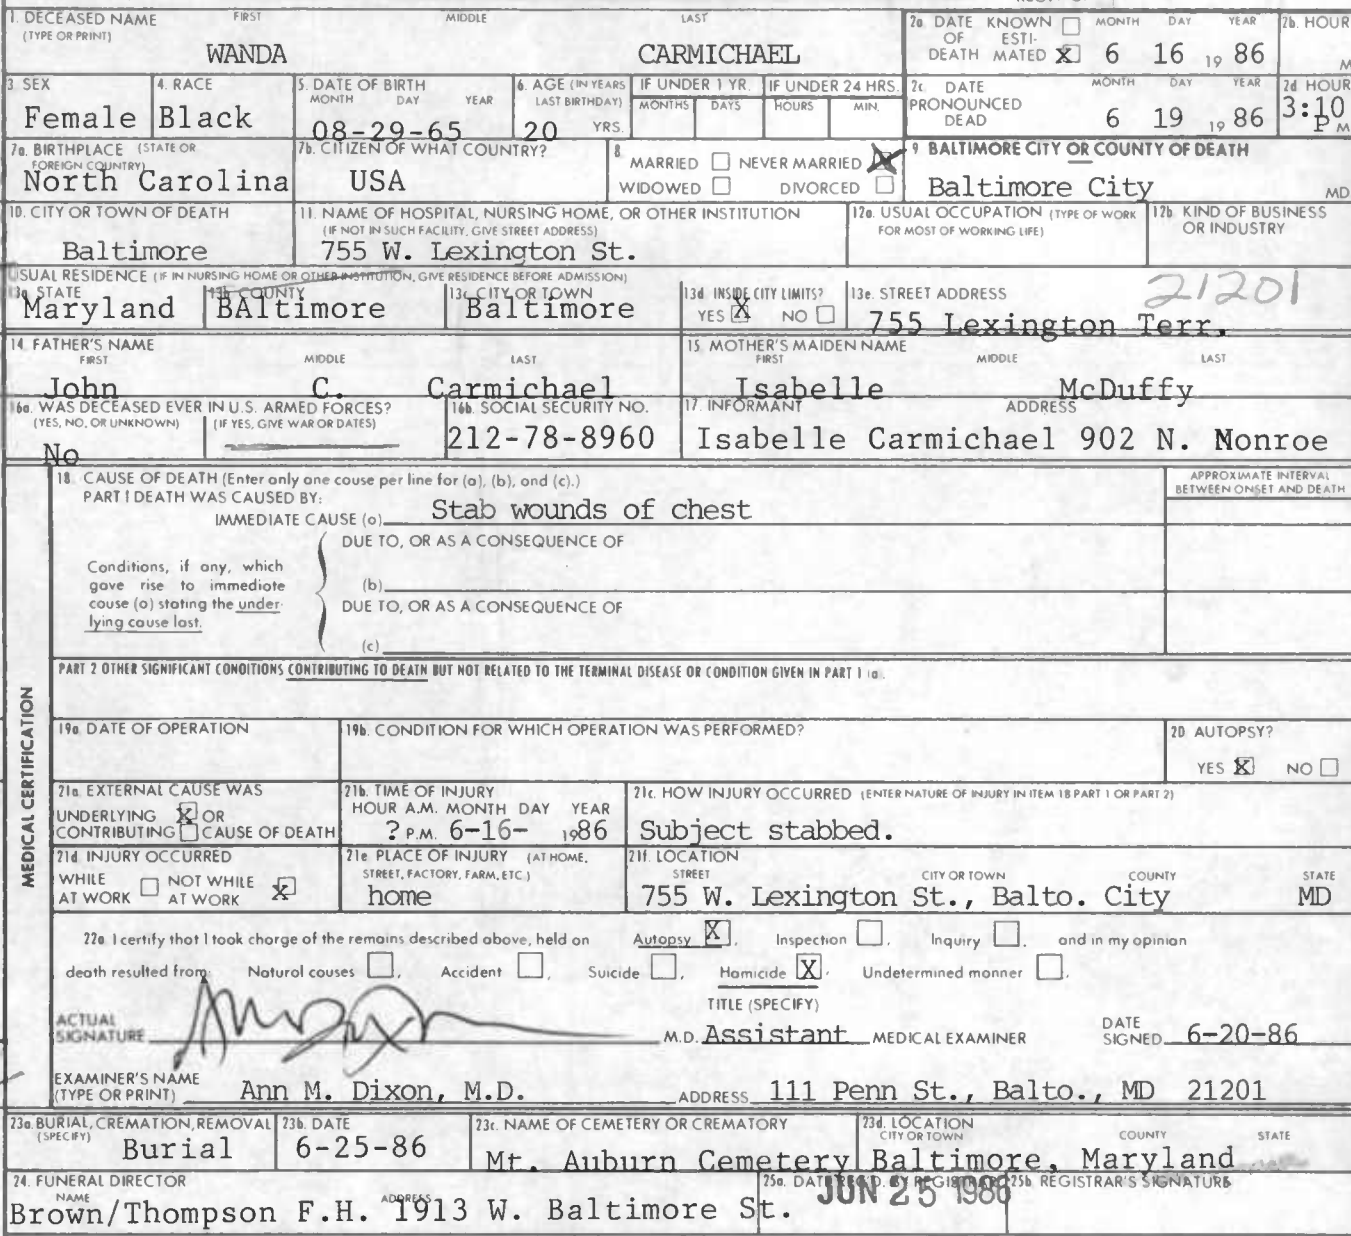 1. DECEASED NAME FIRST MIDDLE LAST
(TYPE OR PRINT)
WANDA CARMICHAEL
2a. DATE OF DEATH KNOWN ☐ ESTIMATED ☒ MONTH DAY YEAR
6 16 1986
2b. HOUR
M
3. SEX
Female
4. RACE
Black
5. DATE OF BIRTH
MONTH DAY YEAR
08-29-65
6. AGE (IN YEARS LAST BIRTHDAY)
20 YRS.
IF UNDER 1 YR.
MONTHS DAYS
IF UNDER 24 HRS.
HOURS MIN.
2c. DATE PRONOUNCED DEAD MONTH DAY YEAR
6 19 1986
2d HOUR
3:10 P M
7a. BIRTHPLACE (STATE OR FOREIGN COUNTRY)
North Carolina
7b. CITIZEN OF WHAT COUNTRY?
USA
8 MARRIED ☐ NEVER MARRIED ☒
WIDOWED ☐ DIVORCED ☐
9 BALTIMORE CITY OR COUNTY OF DEATH
Baltimore City MD
10. CITY OR TOWN OF DEATH
Baltimore
11. NAME OF HOSPITAL, NURSING HOME, OR OTHER INSTITUTION
(IF NOT IN SUCH FACILITY, GIVE STREET ADDRESS)
755 W. Lexington St.
12a. USUAL OCCUPATION (TYPE OF WORK FOR MOST OF WORKING LIFE)
12b. KIND OF BUSINESS OR INDUSTRY
USUAL RESIDENCE (IF IN NURSING HOME OR OTHER INSTITUTION, GIVE RESIDENCE BEFORE ADMISSION)
13a. STATE
Maryland
13b. COUNTY
BAltimore
13c. CITY OR TOWN
Baltimore
13d. INSIDE CITY LIMITS?
YES ☒ NO ☐
13e. STREET ADDRESS 21201
755 Lexington Terr.
14. FATHER'S NAME
FIRST MIDDLE LAST
John C. Carmichael
15. MOTHER'S MAIDEN NAME
FIRST MIDDLE LAST
Isabelle McDuffy
16a. WAS DECEASED EVER IN U.S. ARMED FORCES?
(YES, NO, OR UNKNOWN) (IF YES, GIVE WAR OR DATES)
No
16b. SOCIAL SECURITY NO.
212-78-8960
17. INFORMANT ADDRESS
Isabelle Carmichael 902 N. Monroe
MEDICAL CERTIFICATION
18 CAUSE OF DEATH (Enter only one cause per line for (a), (b), and (c).)
PART I DEATH WAS CAUSED BY:
IMMEDIATE CAUSE (a) Stab wounds of chest
APPROXIMATE INTERVAL BETWEEN ONSET AND DEATH
DUE TO, OR AS A CONSEQUENCE OF
Conditions, if any, which gave rise to immediate cause (a) stating the underlying cause last.
(b)
DUE TO, OR AS A CONSEQUENCE OF
(c)
PART 2 OTHER SIGNIFICANT CONDITIONS CONTRIBUTING TO DEATH BUT NOT RELATED TO THE TERMINAL DISEASE OR CONDITION GIVEN IN PART 1 (a).
19a. DATE OF OPERATION
19b. CONDITION FOR WHICH OPERATION WAS PERFORMED?
20. AUTOPSY?
YES ☒ NO ☐
21a. EXTERNAL CAUSE WAS
UNDERLYING ☒ OR
CONTRIBUTING ☐ CAUSE OF DEATH
21b. TIME OF INJURY
HOUR A.M. MONTH DAY YEAR
? P.M. 6-16- 1986
21c. HOW INJURY OCCURRED (ENTER NATURE OF INJURY IN ITEM 18 PART 1 OR PART 2)
Subject stabbed.
21d. INJURY OCCURRED
WHILE AT WORK ☐ NOT WHILE AT WORK ☒
21e PLACE OF INJURY (AT HOME, STREET, FACTORY, FARM, ETC.)
home
21f. LOCATION
STREET CITY OR TOWN COUNTY STATE
755 W. Lexington St., Balto. City MD
22a I certify that I took charge of the remains described above, held on Autopsy ☒, Inspection ☐, Inquiry ☐, and in my opinion
death resulted from: Natural causes ☐, Accident ☐, Suicide ☐, Homicide ☒, Undetermined manner ☐.
ACTUAL SIGNATURE Ann Dixon M.D.
TITLE (SPECIFY)
Assistant MEDICAL EXAMINER
DATE SIGNED 6-20-86
EXAMINER'S NAME (TYPE OR PRINT) Ann M. Dixon, M.D. ADDRESS 111 Penn St., Balto., MD 21201
23a. BURIAL, CREMATION, REMOVAL (SPECIFY)
Burial
23b. DATE
6-25-86
23c. NAME OF CEMETERY OR CREMATORY
Mt. Auburn Cemetery
23d. LOCATION
CITY OR TOWN COUNTY STATE
Baltimore, Maryland
24. FUNERAL DIRECTOR
NAME ADDRESS
Brown/Thompson F.H. 1913 W. Baltimore St.
25a. DATE REC'D. BY REGISTRAR
JUN 25 1986
25b. REGISTRAR'S SIGNATURE